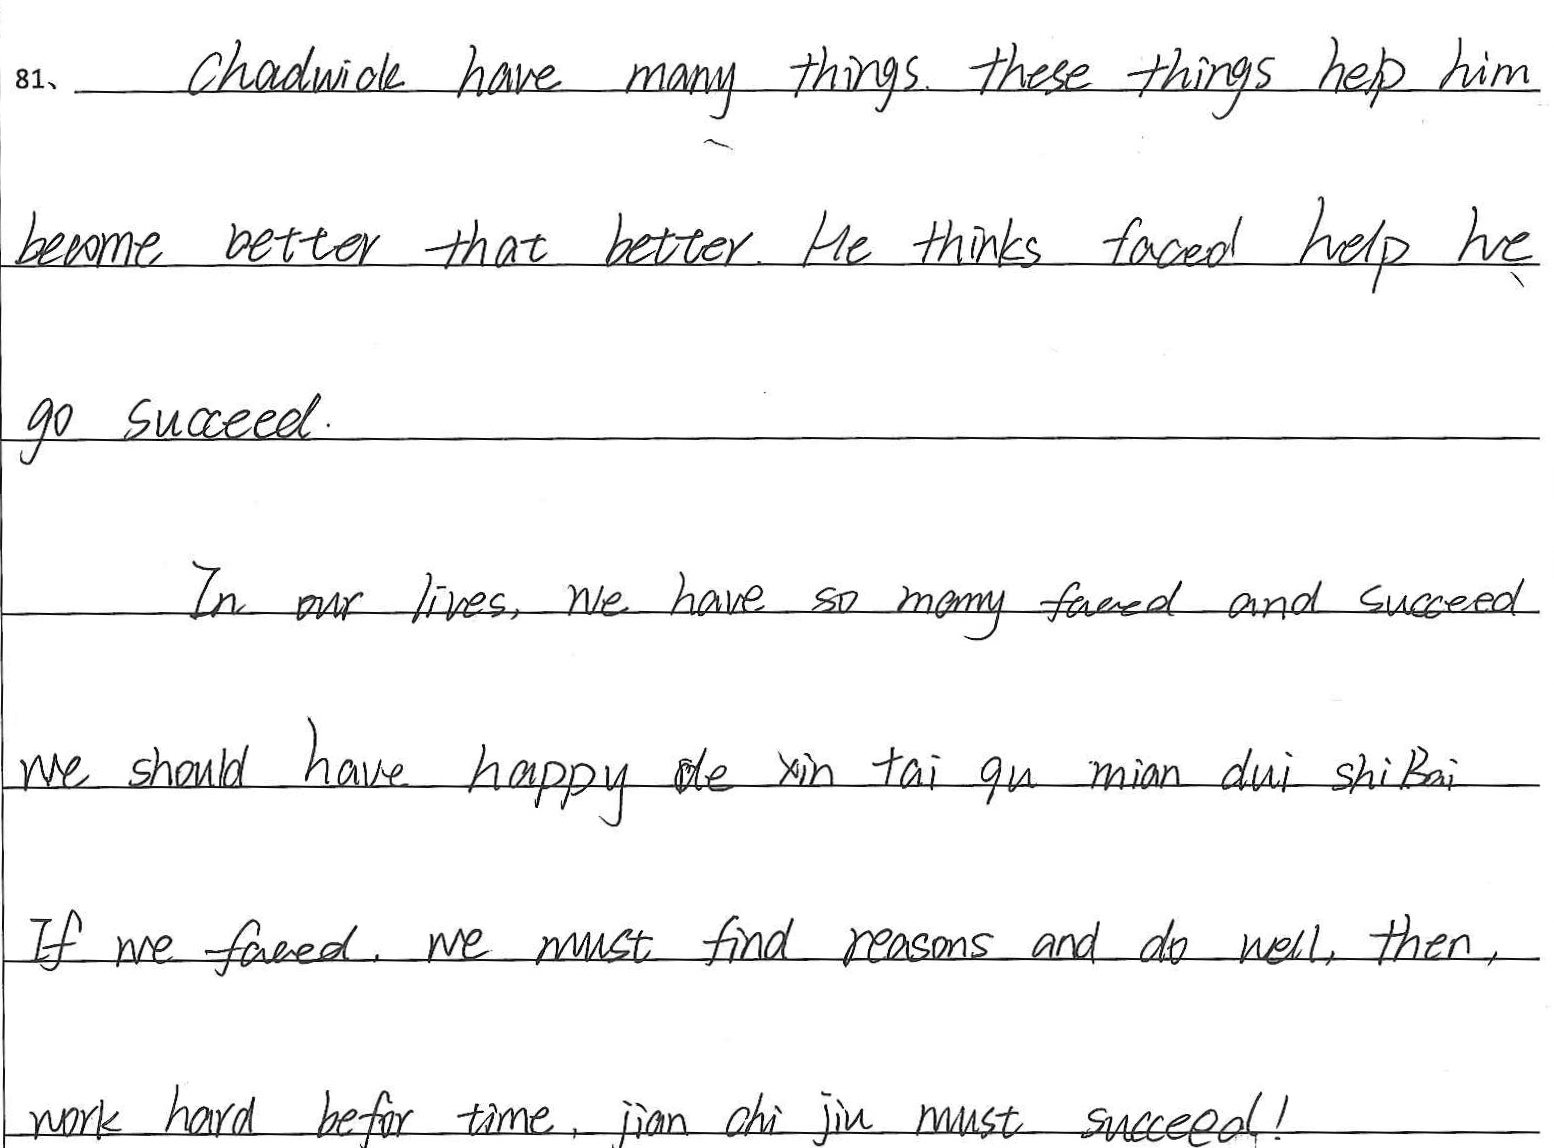 81、 Chadwick have many things. these things help him
become better that better. He thinks faced help he
go succeed.
In our lives, we have so many faced and succeed
we should have happy de xin tai qu mian dui shiBai
If we faced. we must find reasons and do well, then,
work hard befor time, jian chi jiu must succeed!